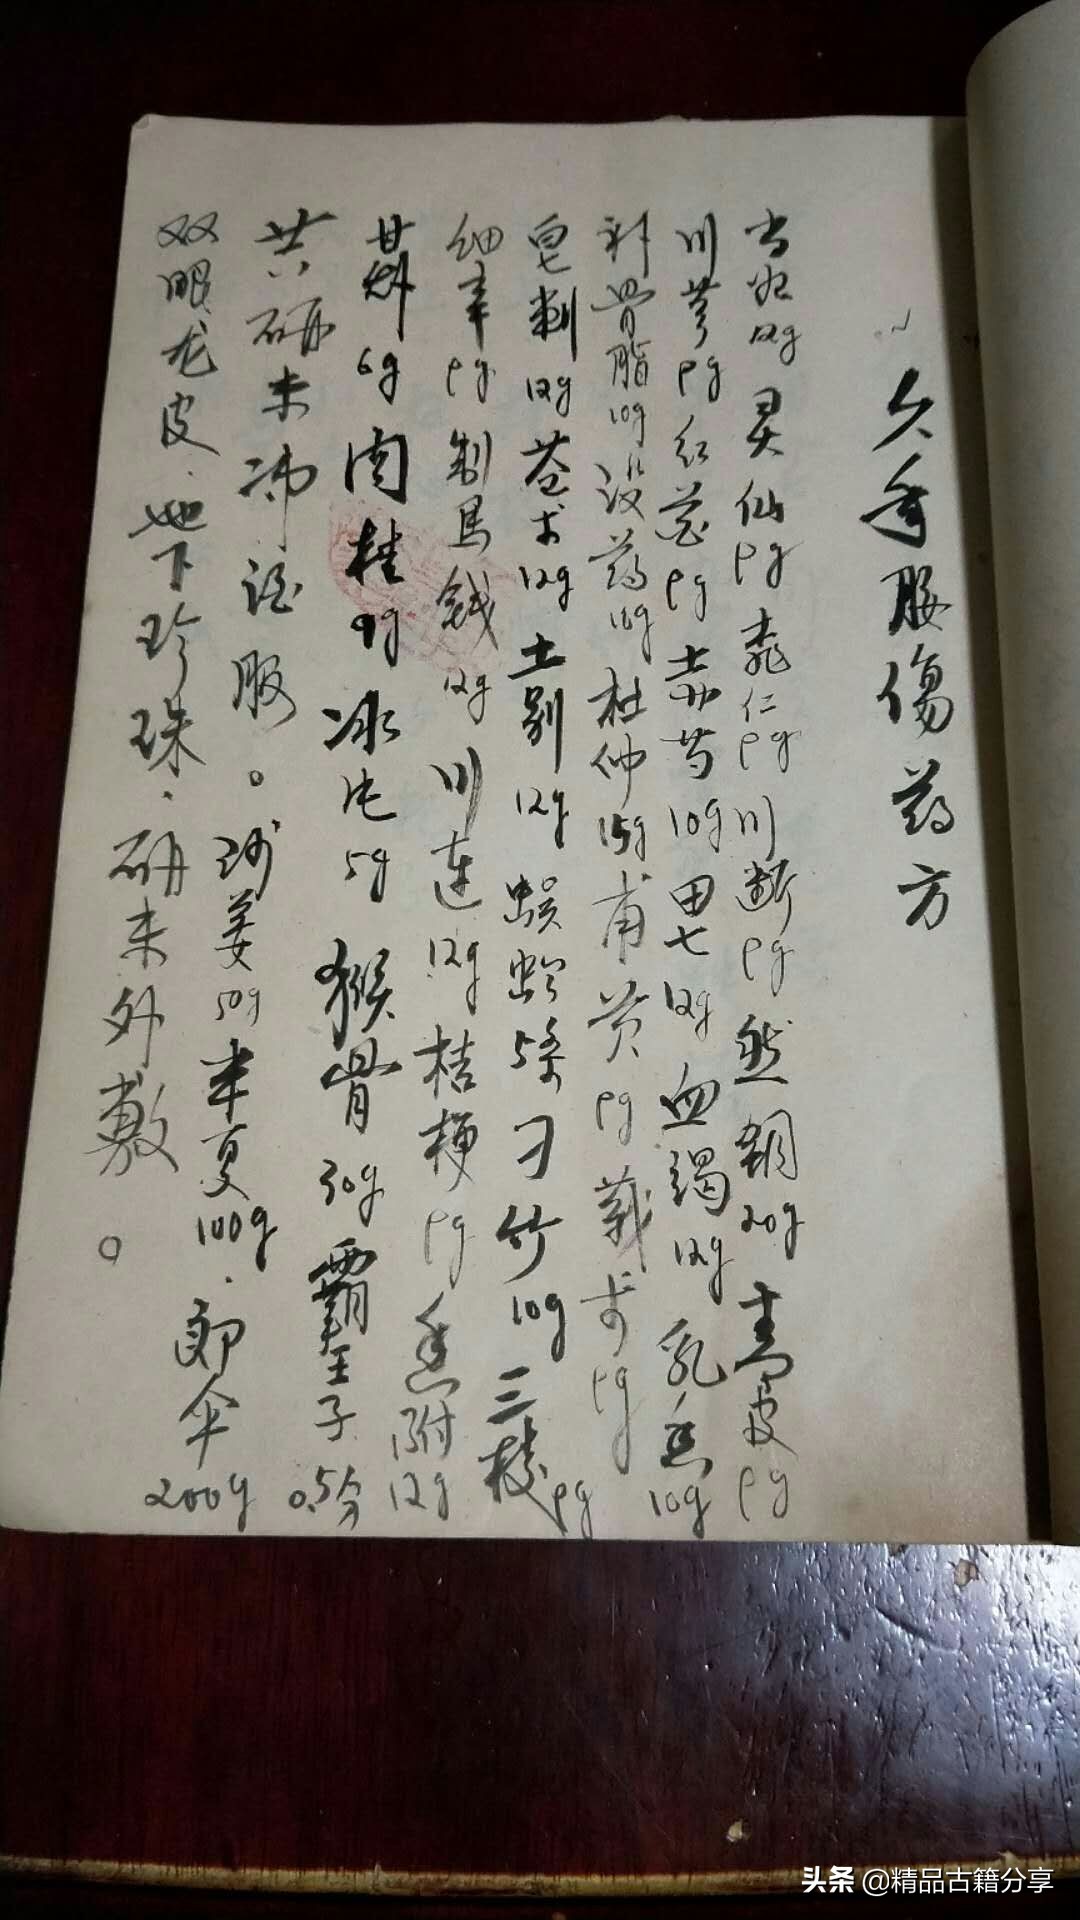 久年腰伤药方
当归12g 灵仙9g 桃仁9g 川断9g 然铜20g 青皮9g
川芎9g 红花9g 赤芍10g 田七12g 血竭12g 乳香10g
骨脂10g 没药10g 杜仲15g 莪术9g
皂刺12g 苍术12g 土别12g 蜈蚣5条 刁竹10g 三棱9g
细辛9g 制馬钱12g 川连12g 桔梗9g 香附12g
6g 肉桂9g 冰片5g 猴骨30g 霸王子0.5分
共研末冲酒服。
沙姜50g 半夏100g. 郎伞200g
双眼龙皮. 地下珍珠. 研末外敷。
头条 @精品古籍分享